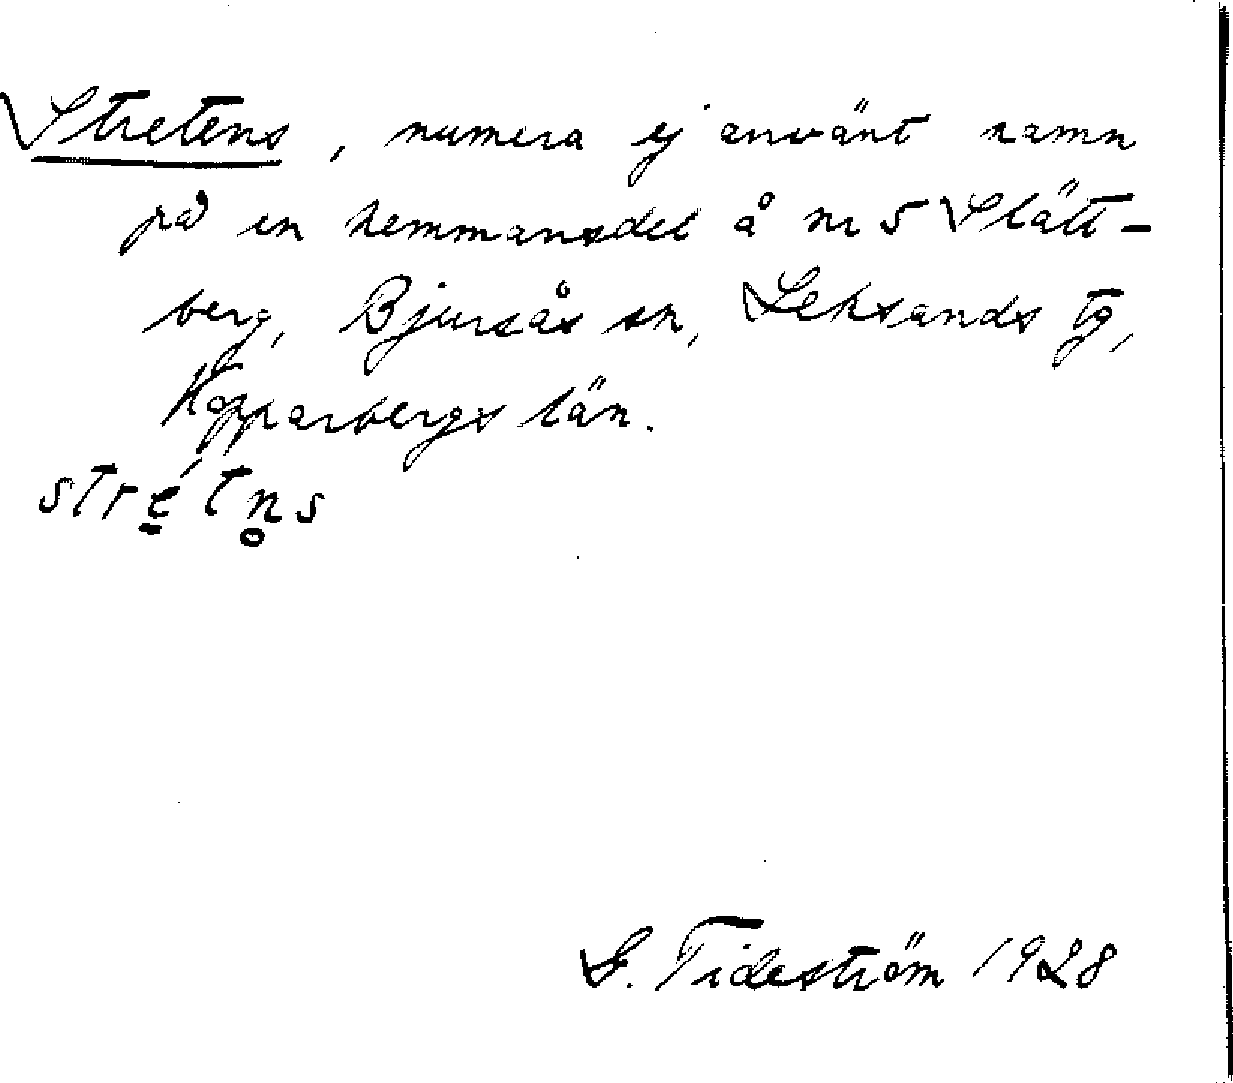 Stretens, numera ej använt namn
på en hemmansdel å nr 5 Slätt-
berg, Bjursås sn, Leksands tg,
Kopparbergs län.
stré̱tn̥s
G. Tideström 1928